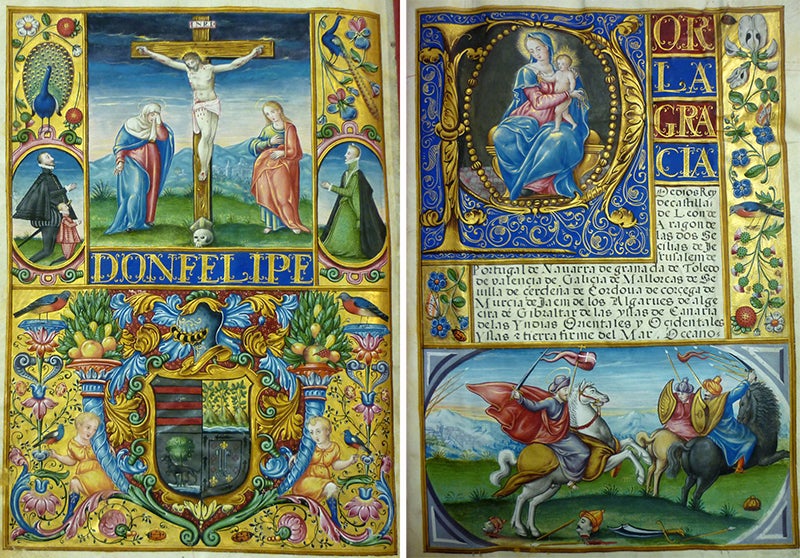 INRI
DON FELIPE
POR
LA
GRA
CIA
de dios Rey
de castilla
de Leon de
Aragon de
las dos Se
cilias de Je
rusalem de
Portugal de Navarra de granada de Toledo
de valencia de Galicia de Mallorcas de Se
villa de cerdeña de Cordova de corcega de
Murcia de Jaen de los Algarues de alge
cira de Gibraltar de las yslas de Canaria
de las Yndias Orientales y Ocidentales
Yslas & tierra firme del Mar Oceano